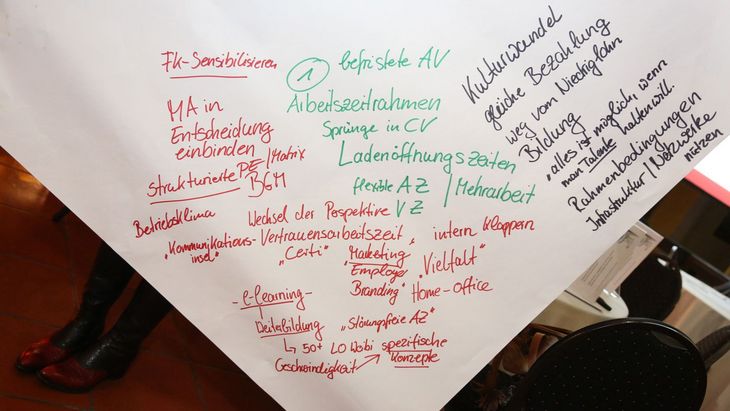 FK-Sensibilisieren
MA in
Entscheidung
einbinden
strukturierte PE/Matrix
BGM
Betriebsklima
1
befristete AV
Arbeitszeitrahmen
Sprünge in CV
Ladenöffnungszeiten
flexible AZ / Mehrarbeit
VZ
Kulturwandel
gleiche Bezahlung
weg vom Niedriglohn
Bildung
"alles ist möglich, wenn
man Talente halten will.
Rahmenbedingungen
Infrastruktur/Netzwerke
nützen
Wechsel der Perspektive
"Kommunikations-
insel"
Vertrauensarbeitszeit, intern kloppern
"Ceiti"
"Marketing
Employer
Branding"
"Vielfalt"
Home-office
- e-learning -
Weiterbildung
"Störungsfreie AZ"
50+ LO Wobi spezifische
Geschwindigkeit → Konzepte